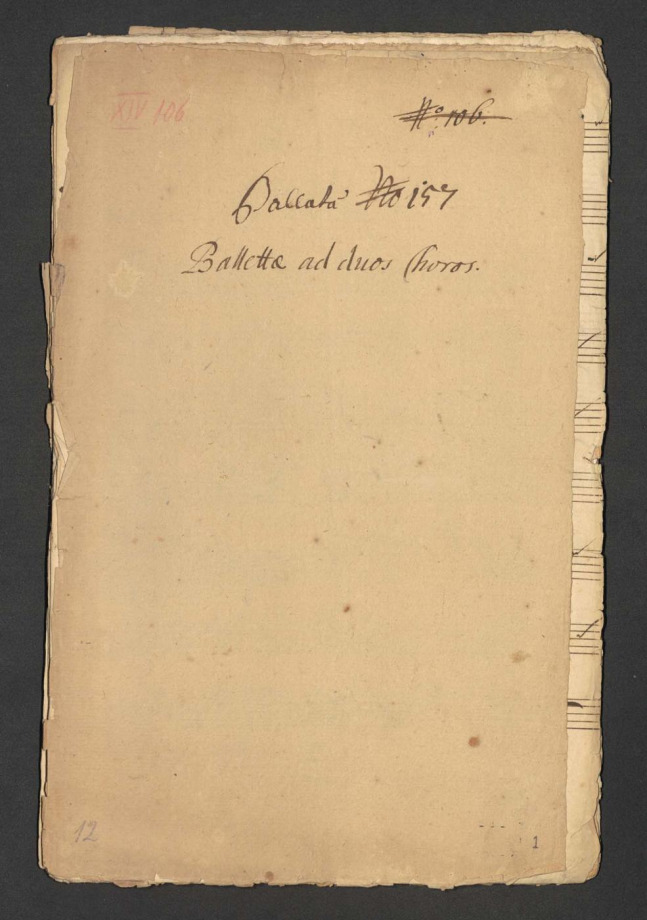 XIV 106
No. 106.
Ballata No 157
Ballettæ ad duos Choros.
12
1